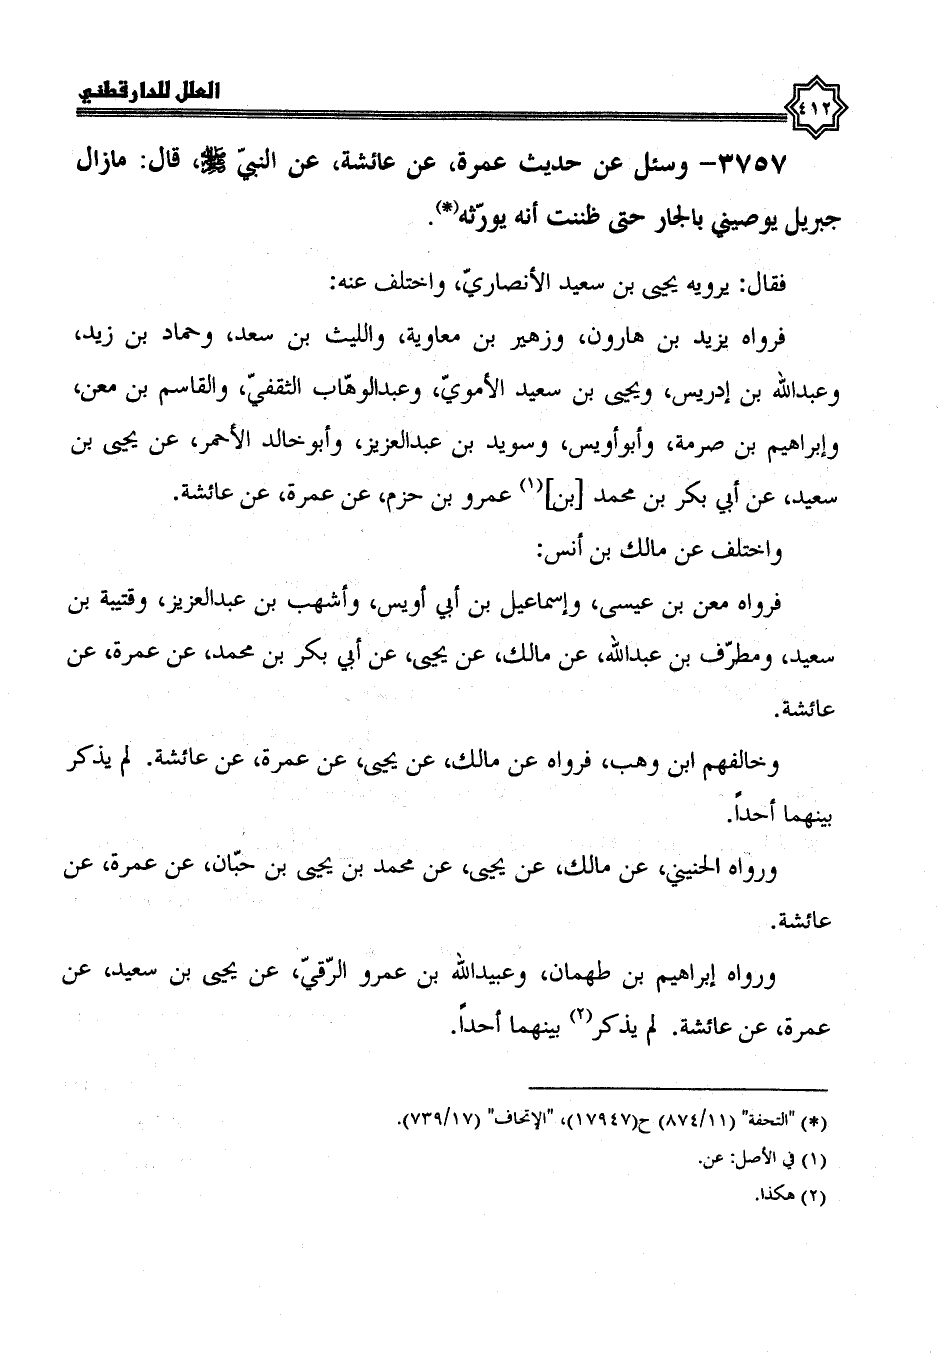 العلل للدارقطني
٤١٢
٣٧٥٧- وسئل عن حديث عمرة، عن عائشة، عن النبيّ ﷺ، قال: مازال
جبريل يوصيني بالجار حتى ظننت أنه يورّثه(*).
فقال: يرويه يحيى بن سعيد الأنصاريّ، واختلف عنه:
فرواه يزيد بن هارون، وزهير بن معاوية، والليث بن سعد، وحماد بن زيد،
وعبدالله بن إدريس، ويحيى بن سعيد الأمويّ، وعبدالوهّاب الثقفيّ، والقاسم بن معن،
وإبراهيم بن صرمة، وأبوأويس، وسويد بن عبدالعزيز، وأبوخالد الأحمر، عن يحيى بن
سعيد، عن أبي بكر بن محمد [بن](١) عمرو بن حزم، عن عمرة، عن عائشة.
واختلف عن مالك بن أنس:
فرواه معن بن عيسى، وإسماعيل بن أبي أويس، وأشهب بن عبدالعزيز، وقتيبة بن
سعيد، ومطرّف بن عبدالله، عن مالك، عن يحيى، عن أبي بكر بن محمد، عن عمرة، عن
عائشة.
وخالفهم ابن وهب، فرواه عن مالك، عن يحيى، عن عمرة، عن عائشة. لم يذكر
بينهما أحداً.
ورواه الحنيني، عن مالك، عن يحيى، عن محمد بن يحيى بن حبّان، عن عمرة، عن
عائشة.
ورواه إبراهيم بن طهمان، وعبيدالله بن عمرو الرّقيّ، عن يحيى بن سعيد، عن
عمرة، عن عائشة. لم يذكر(٢) بينهما أحداً.
(*) "التحفة" (٨٧٤/١١) ح(١٧٩٤٧)، "الإتحاف" (٧٣٩/١٧).
(١) في الأصل: عن.
(٢) هكذا.